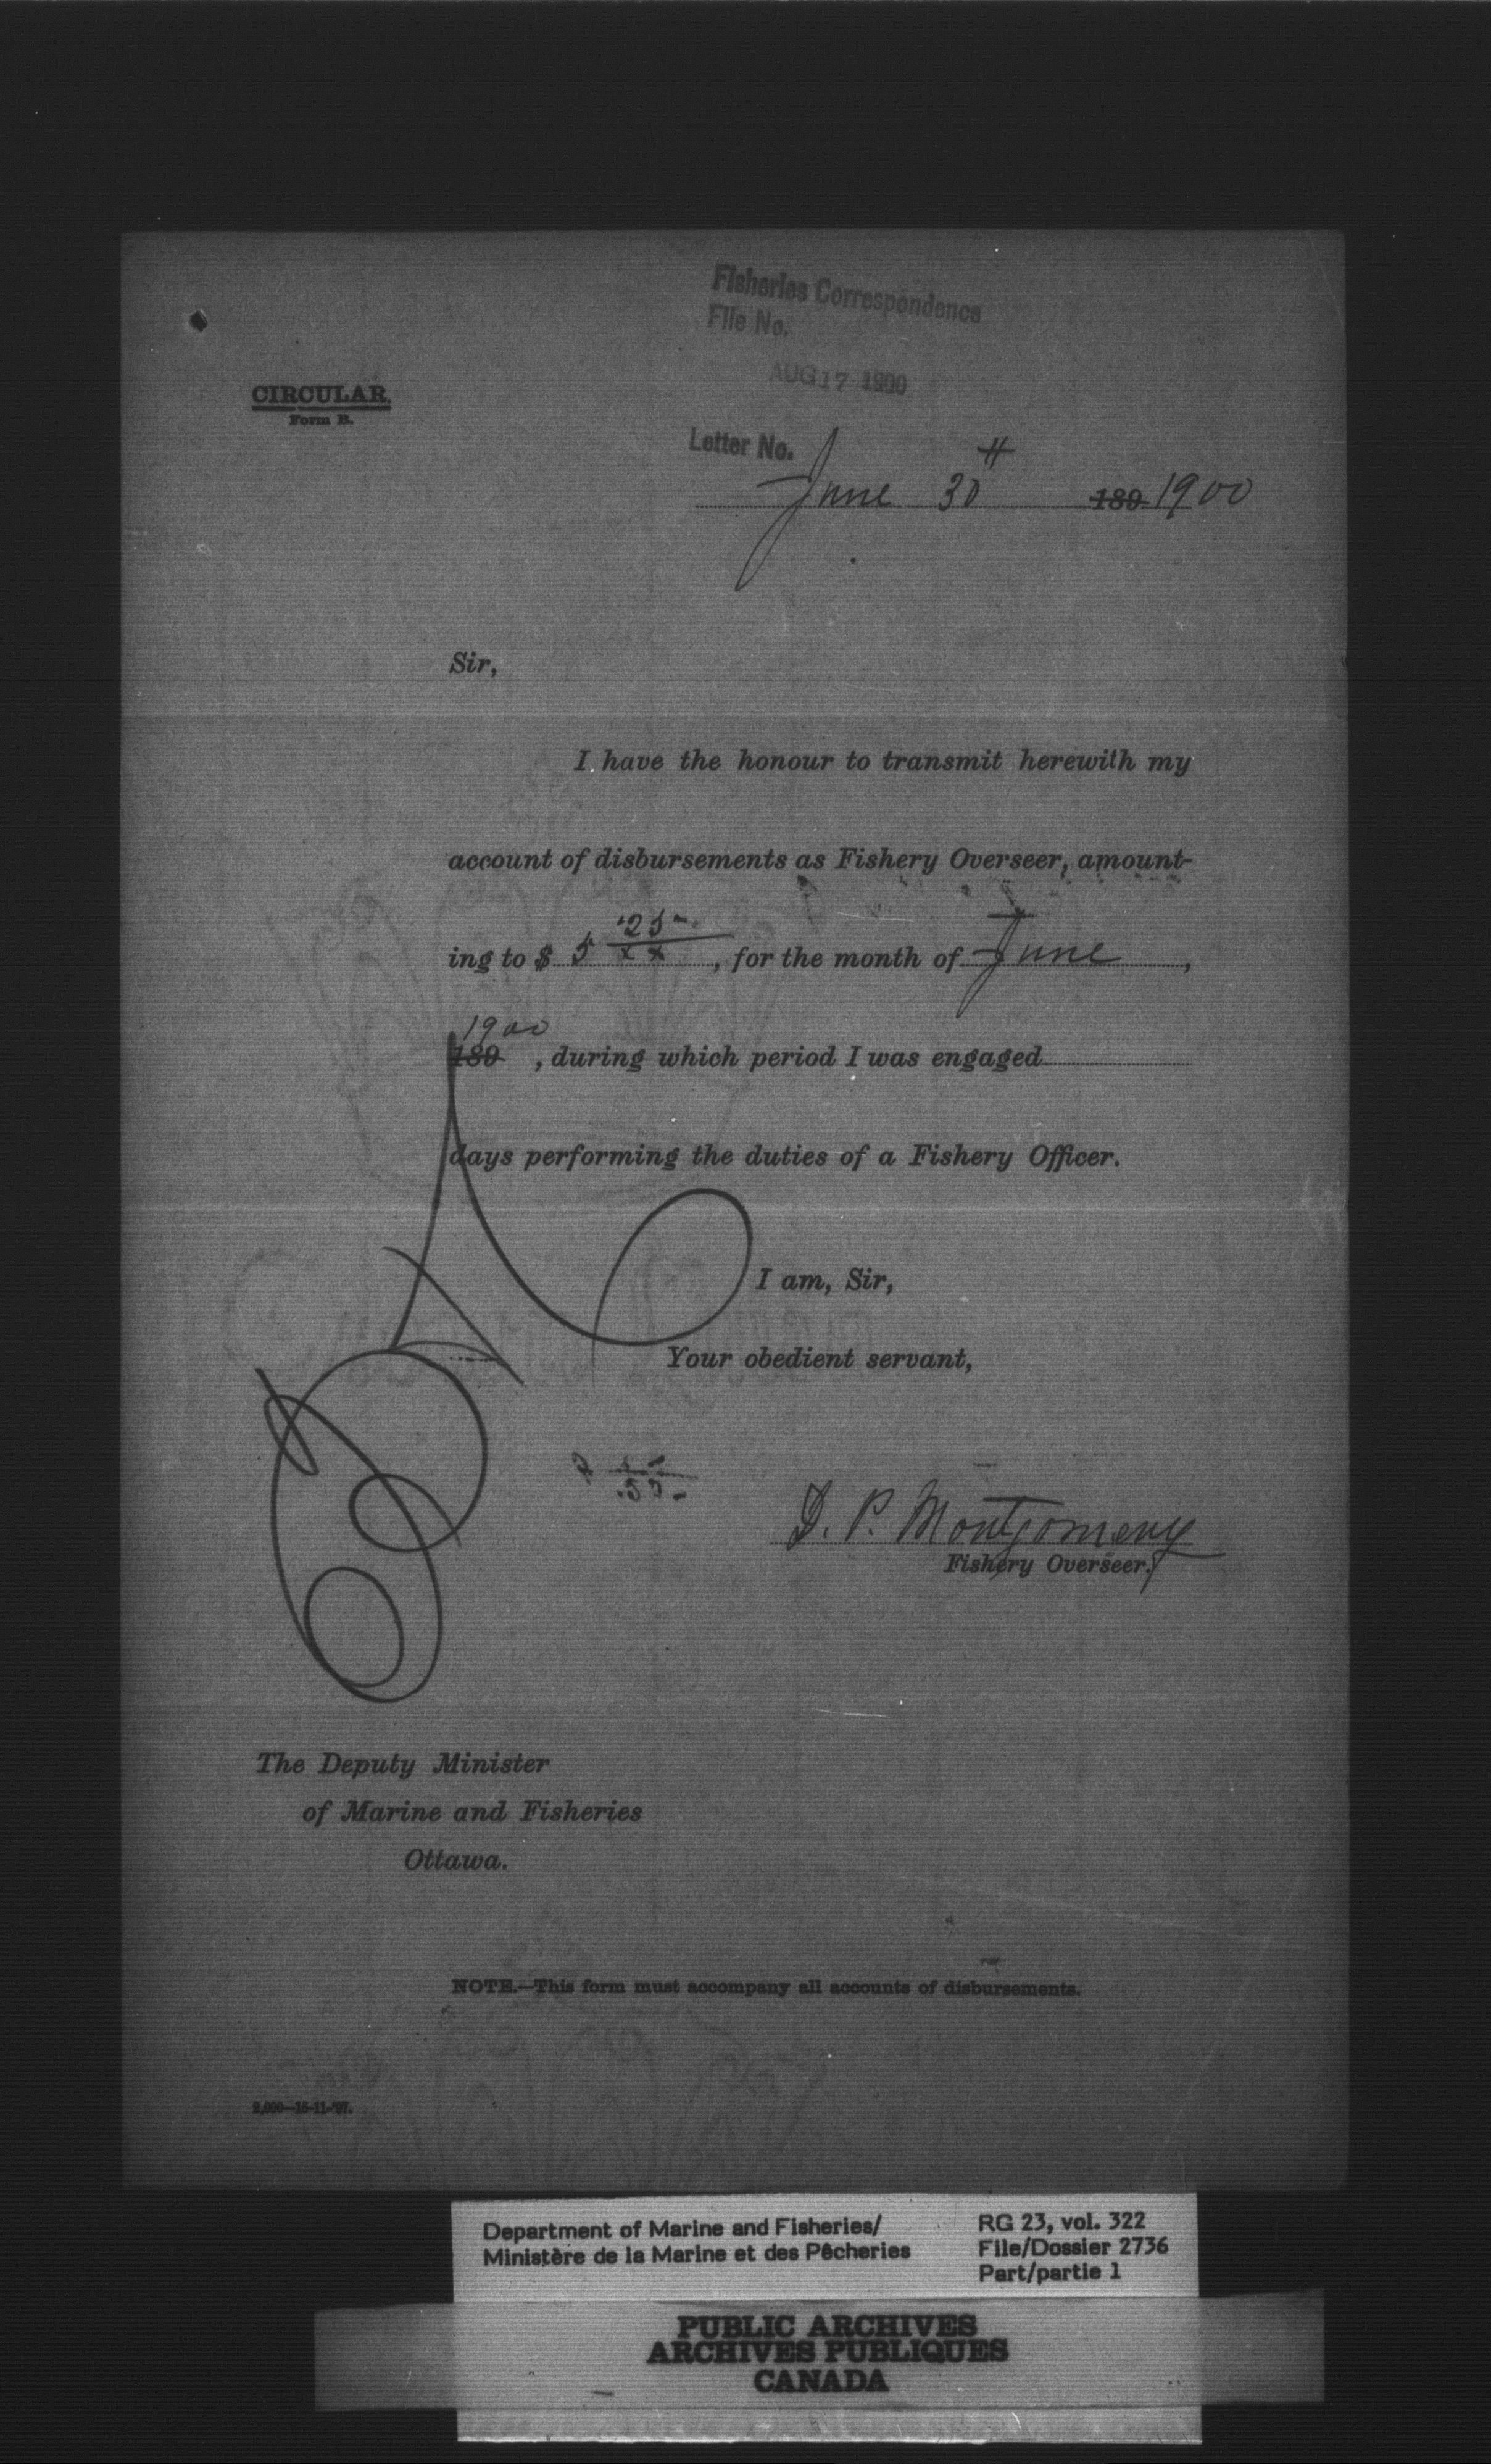 Fisheries Correspondence
File No.
AUG 17 1900
CIRCULAR.
Form B.
Letter No.
June 30th 189 1900
Sir,
I have the honour to transmit herewith my
account of disbursements as Fishery Overseer, amount-
ing to $ 5 25/xx, for the month of June,
1900
189 , during which period I was engaged
days performing the duties of a Fishery Officer.
I am, Sir,
Your obedient servant,
D. P. Montgomery
Fishery Overseer.
The Deputy Minister
of Marine and Fisheries
Ottawa.
NOTE.—This form must accompany all accounts of disbursements.
2,000—15-11-'97.
Department of Marine and Fisheries/
Ministère de la Marine et des Pêcheries
RG 23, vol. 322
File/Dossier 2736
Part/partie 1
PUBLIC ARCHIVES
ARCHIVES PUBLIQUES
CANADA